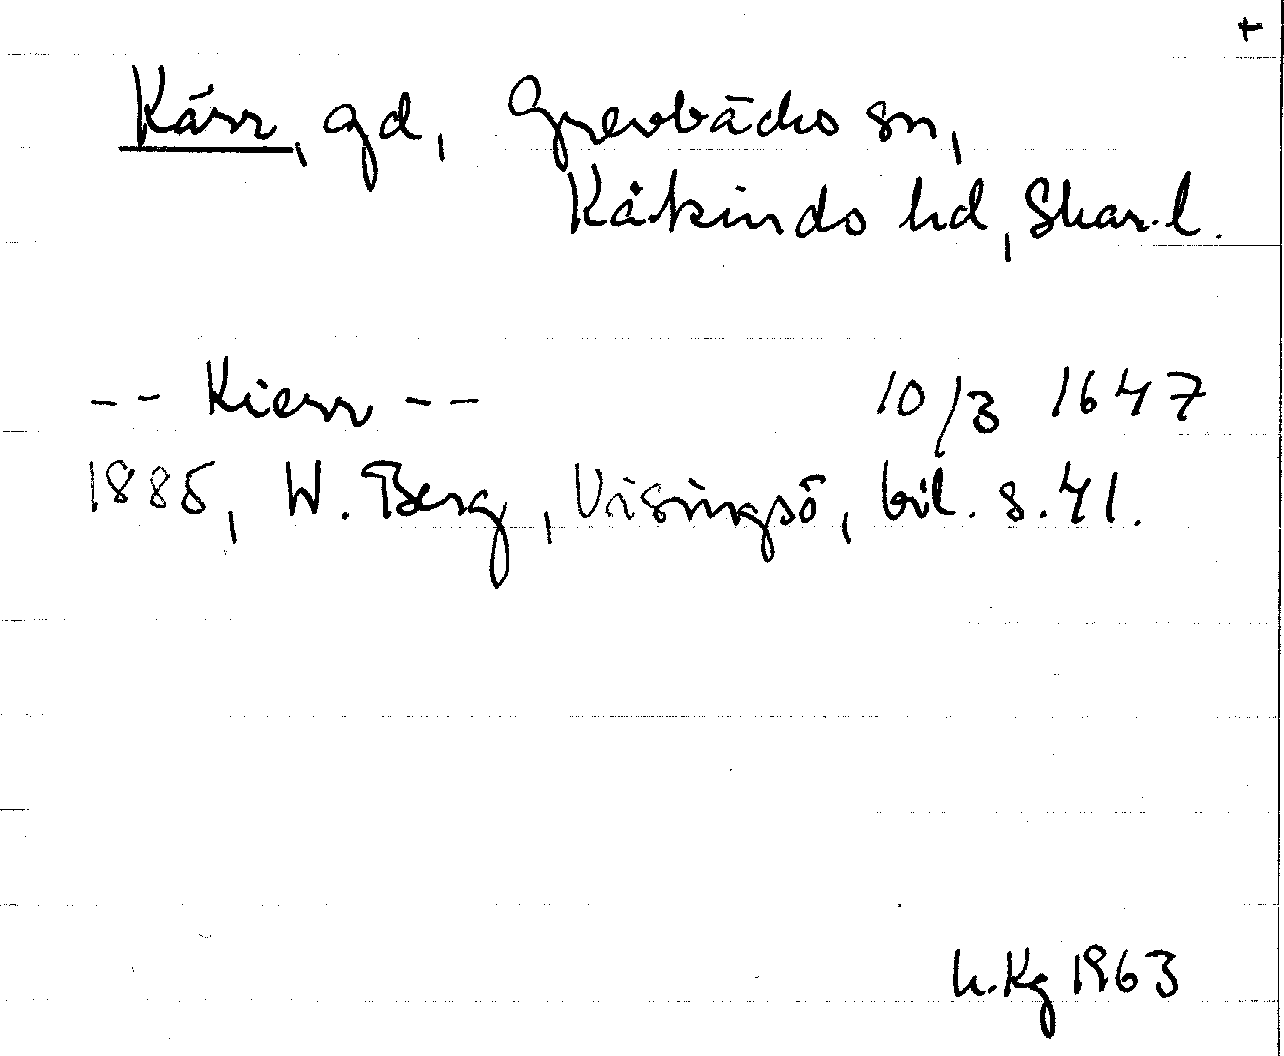 +
Kärr, gd, Grevbäcks sn,
Kåkinds hd, Skar.l.
-- Kierr -- 10/3 1647
1885, W. Berg, Visingsö, bil. s. 41.
h.Kg 1963